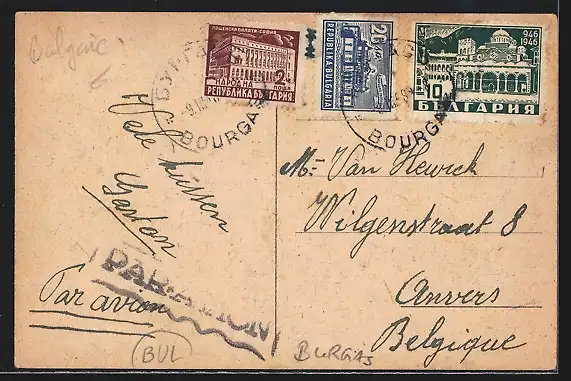 Bulgarie
ПОЩЕНСКИ ПАЛАТА - СОФИЯ
2 ЛЕВА
НАРОДНА
РЕПУБЛИКА БЪЛГАРИЯ
REPUBLIKA BULGARIA
946
1946
10
БЪЛГАРИЯ
БУРГАС
BOURGAS
BOURGAS
Vele kussen
Gaston
Par avion
PAR AVION
Mr Van Hewick
Wilgenstraat 8
Anvers
Belgique
BUL
BURGAS